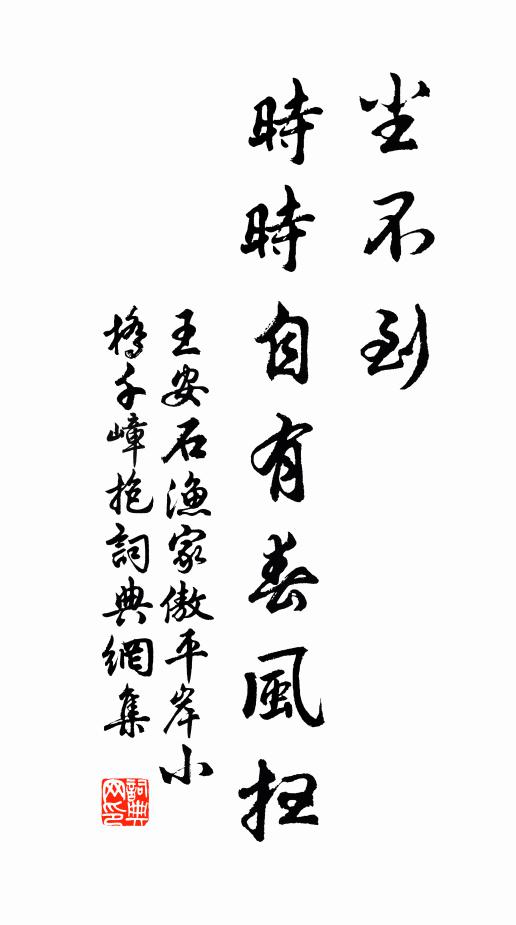 尘不到
時時自有春風扫
王安石漁家傲平岸小
橋千嶂抱詞典網集
詞典网印